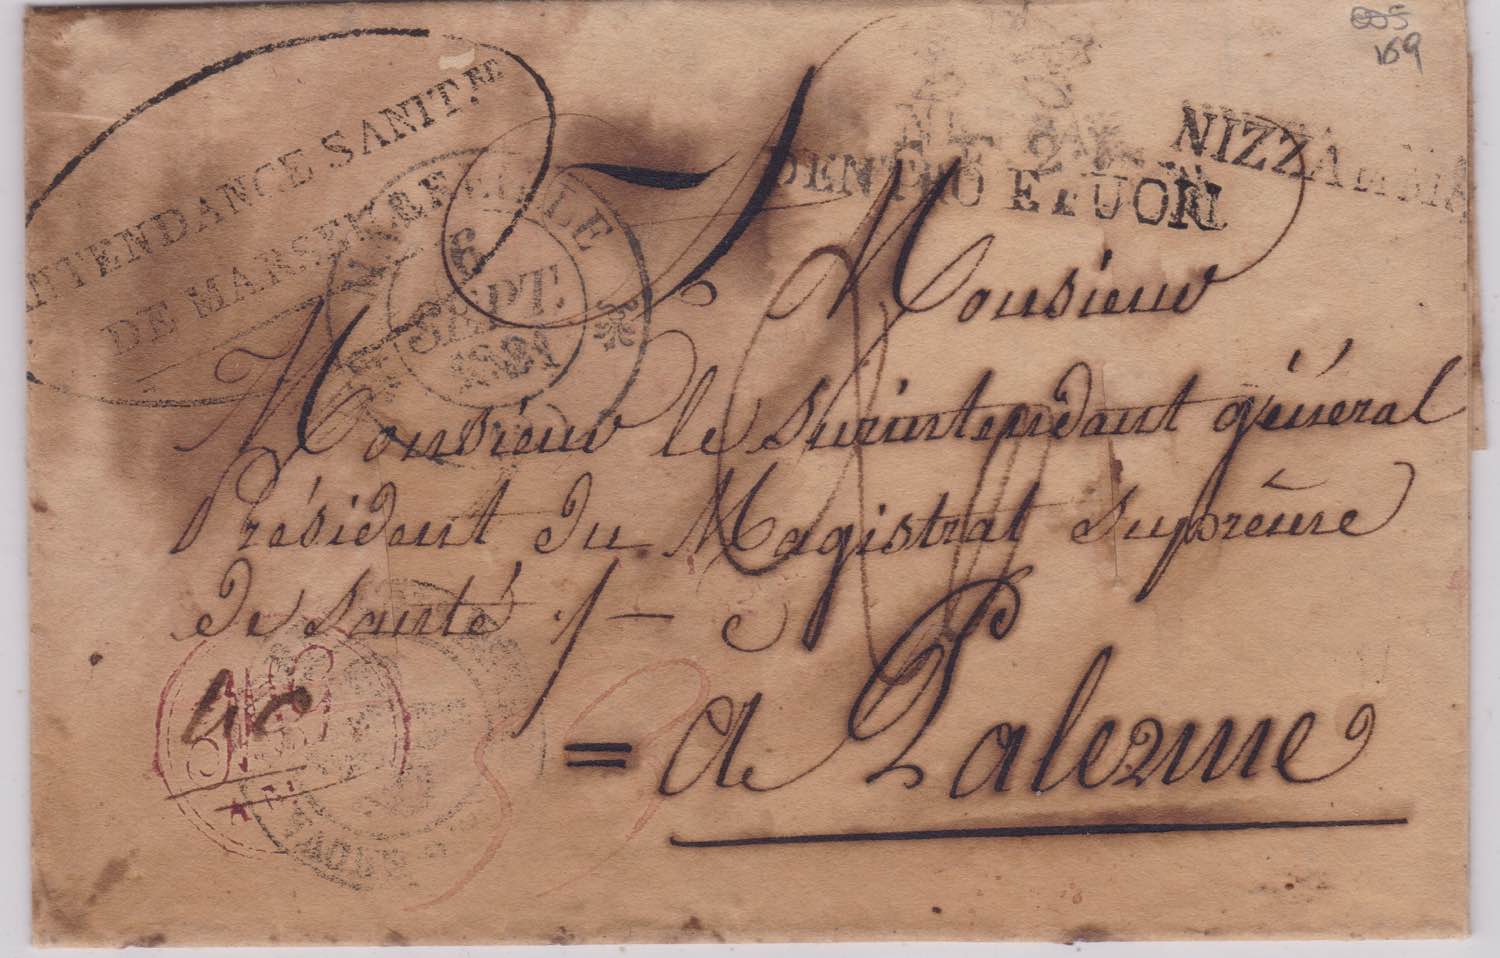 169
INTENDANCE SANIT.RE
DE MARSEILLE
MARSEILLE
6
SEPT.
NETTA
DENTRO E FUORI
NIZZA
Monsieur
Monsieur le Surintendant général
Président du Magistrat Suprême
de Santé
40
= a Palerme